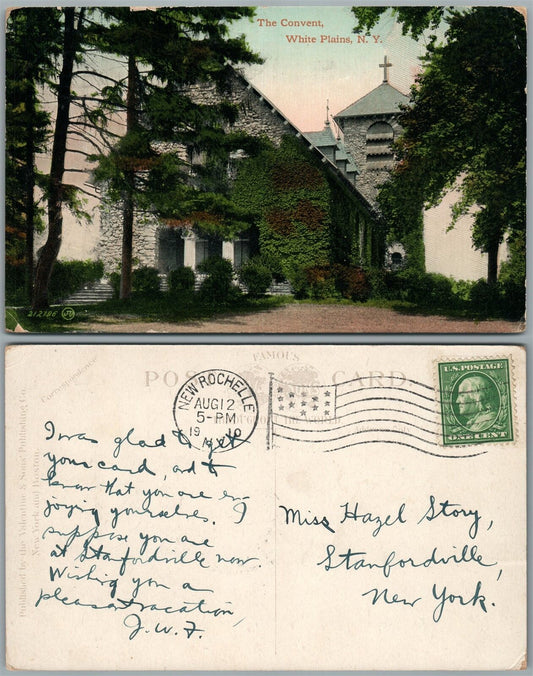 The Convent,
White Plains, N. Y.
212186 JV
FAMOUS
POST CARD.
THROUGHOUT THE WORLD
Correspondence.
Published by the Valentine & Sons' Publishing Co.
New York and Boston.
NEW ROCHELLE
AUG 12
5-PM
1910
N.Y.
U.S. POSTAGE
ONE CENT
I was glad to get
your card, and to
know that you are en-
joying yourselves. I
suppose you are
at Stanfordville now.
Wishing you a
pleasant vacation,
J.W.F.
Miss Hazel Story,
Stanfordville,
New York.